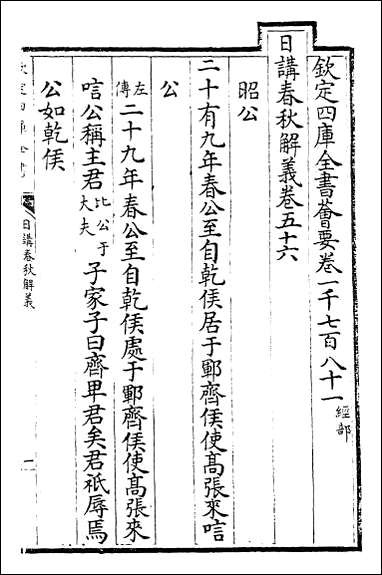 欽定四庫全書薈要卷一千七百八十一 經部
日講春秋解義卷五十六
昭公
二十有九年春公至自乾侯居于鄆齊侯使髙張來唁
公
左傳二十九年春公至自乾侯處于鄆齊侯使髙張來
唁公稱主君比公于大夫子家子曰齊卑君矣君祇辱焉
公如乾侯
欽定四庫全書
日講春秋解義
一